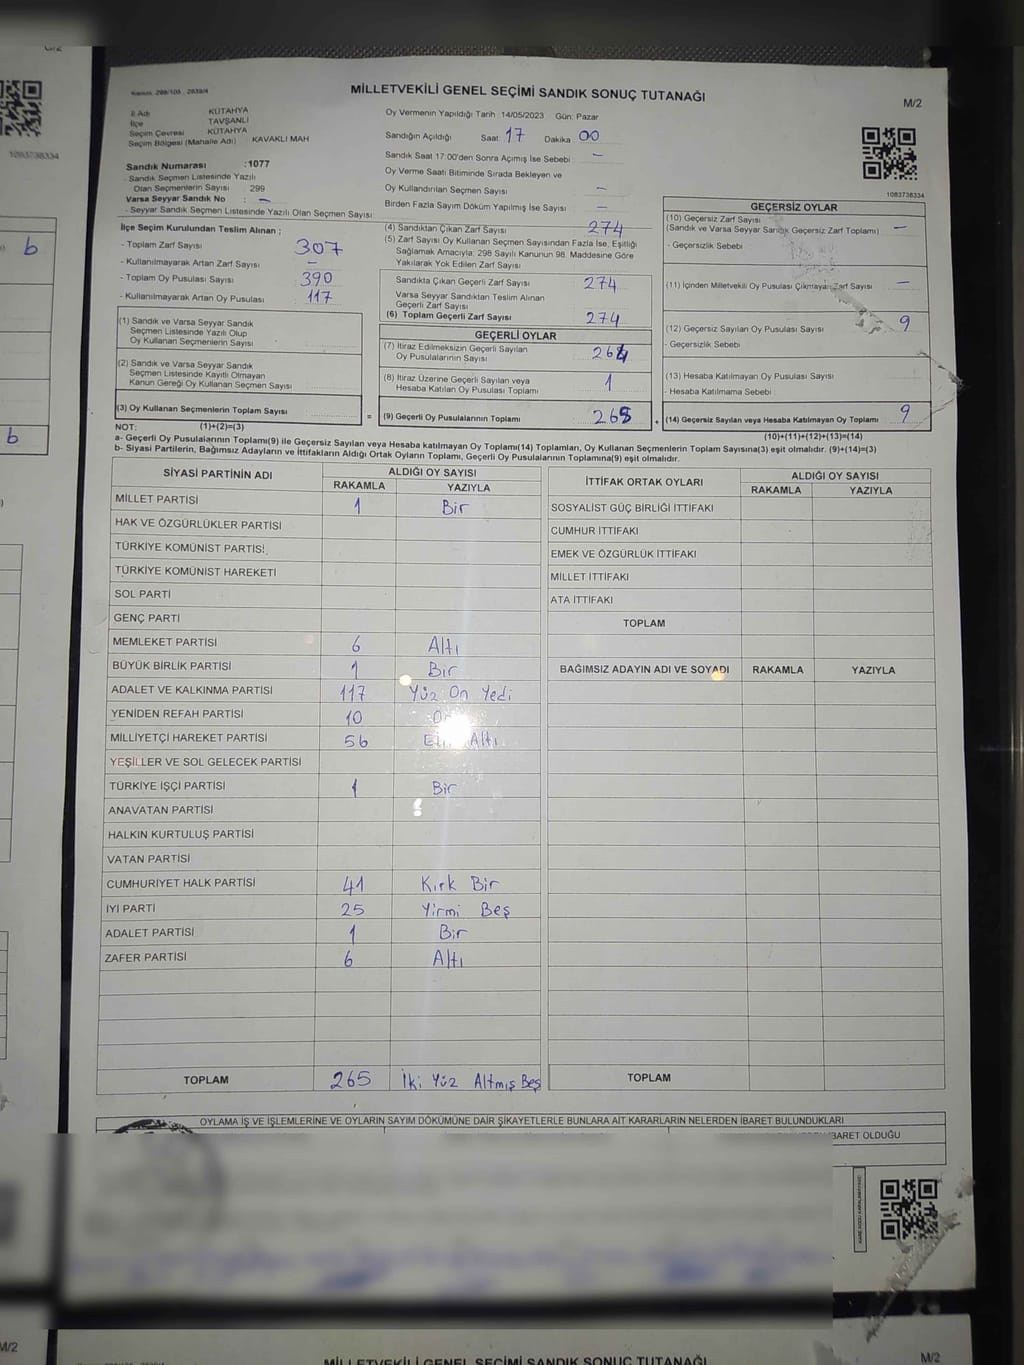 MİLLETVEKİLİ GENEL SEÇİMİ SANDIK SONUÇ TUTANAĞI
M/2
İl Adı KÜTAHYA
İlçe TAVŞANLI
Seçim Çevresi KÜTAHYA
Seçim Bölgesi (Mahalle Adı) KAVAKLI MAH
Sandık Numarası :1077
- Sandık Seçmen Listesinde Yazılı
Olan Seçmenlerin Sayısı 299
Varsa Seyyar Sandık No : -
- Seyyar Sandık Seçmen Listesinde Yazılı Olan Seçmen Sayısı
Oy Vermenin Yapıldığı Tarih :14/05/2023 Gün: Pazar
Sandığın Açıldığı Saat: 17 Dakika 00
Sandık Saat 17:00'den Sonra Açımış İse Sebebi : -
Oy Verme Saati Bitiminde Sırada Bekleyen ve
Oy Kullandırılan Seçmen Sayısı -
Birden Fazla Sayım Döküm Yapılmış İse Sayısı -
1083738334
İlçe Seçim Kurulundan Teslim Alınan ;
- Toplam Zarf Sayısı 307
- Kullanılmayarak Artan Zarf Sayısı -
- Toplam Oy Pusulası Sayısı 390
- Kullanılmayarak Artan Oy Pusulası 117
(1) Sandık ve Varsa Seyyar Sandık
Seçmen Listesinde Yazılı Olup
Oy Kullanan Seçmenlerin Sayısı
(2) Sandık ve Varsa Seyyar Sandık
Seçmen Listesinde Kayıtlı Olmayan
Kanun Gereği Oy Kullanan Seçmen Sayısı
(3) Oy Kullanan Seçmenlerin Toplam Sayısı
(1)+(2)=(3)
(4) Sandıktan Çıkan Zarf Sayısı 274
(5) Zarf Sayısı Oy Kullanan Seçmen Sayısından Fazla İse, Eşitliği
Sağlamak Amacıyla; 298 Sayılı Kanunun 98. Maddesine Göre
Yakılarak Yok Edilen Zarf Sayısı
Sandıkta Çıkan Geçerli Zarf Sayısı 274
Varsa Seyyar Sandıktan Teslim Alınan
Geçerli Zarf Sayısı
(6) Toplam Geçerli Zarf Sayısı 274
GEÇERLİ OYLAR
(7) İtiraz Edilmeksizin Geçerli Sayılan
Oy Pusulalarının Sayısı 264
(8) İtiraz Üzerine Geçerli Sayılan veya
Hesaba Katılan Oy Pusulası Toplamı 1
= (9) Geçerli Oy Pusulalarının Toplamı 265
GEÇERSİZ OYLAR
(10) Geçersiz Zarf Sayısı
(Sandık ve Varsa Seyyar Sandık Geçersiz Zarf Toplamı) -
- Geçersizlik Sebebi
(11) İçinden Milletvekili Oy Pusulası Çıkmayan Zarf Sayısı -
(12) Geçersiz Sayılan Oy Pusulası Sayısı 9
- Geçersizlik Sebebi
(13) Hesaba Katılmayan Oy Pusulası Sayısı
- Hesaba Katılmama Sebebi
(14) Geçersiz Sayılan veya Hesaba Katılmayan Oy Toplamı 9
(10)+(11)+(12)+(13)=(14)
NOT:
a- Geçerli Oy Pusulalarının Toplamı(9) ile Geçersiz Sayılan veya Hesaba katılmayan Oy Toplamı(14) Toplamları, Oy Kullanan Seçmenlerin Toplam Sayısına(3) eşit olmalıdır. (9)+(14)=(3)
b- Siyasi Partilerin, Bağımsız Adayların ve İttifakların Aldığı Ortak Oyların Toplamı, Geçerli Oy Pusulalarının Toplamına(9) eşit olmalıdır.
SİYASİ PARTİNİN ADI ALDIĞI OY SAYISI
RAKAMLA YAZIYLA
MİLLET PARTİSİ 1 Bir
HAK VE ÖZGÜRLÜKLER PARTİSİ
TÜRKİYE KOMÜNİST PARTİSİ
TÜRKİYE KOMÜNİST HAREKETİ
SOL PARTİ
GENÇ PARTİ
MEMLEKET PARTİSİ 6 Altı
BÜYÜK BİRLİK PARTİSİ 1 Bir
ADALET VE KALKINMA PARTİSİ 117 Yüz On Yedi
YENİDEN REFAH PARTİSİ 10
MİLLİYETÇİ HAREKET PARTİSİ 56 Altı
YEŞİLLER VE SOL GELECEK PARTİSİ
TÜRKİYE İŞÇİ PARTİSİ 1 Bir
ANAVATAN PARTİSİ
HALKIN KURTULUŞ PARTİSİ
VATAN PARTİSİ
CUMHURİYET HALK PARTİSİ 41 Kırk Bir
İYİ PARTİ 25 Yirmi Beş
ADALET PARTİSİ 1 Bir
ZAFER PARTİSİ 6 Altı
TOPLAM 265 İki Yüz Altmış Beş
İTTİFAK ORTAK OYLARI ALDIĞI OY SAYISI
RAKAMLA YAZIYLA
SOSYALİST GÜÇ BİRLİĞİ İTTİFAKI
CUMHUR İTTİFAKI
EMEK VE ÖZGÜRLÜK İTTİFAKI
MİLLET İTTİFAKI
ATA İTTİFAKI
TOPLAM
BAĞIMSIZ ADAYIN ADI VE SOYADI RAKAMLA YAZIYLA
TOPLAM
OYLAMA İŞ VE İŞLEMLERİNE VE OYLARIN SAYIM DÖKÜMÜNE DAİR ŞİKAYETLERLE BUNLARA AİT KARARLARIN NELERDEN İBARET BULUNDUKLARI
İBARET OLDUĞU
1083738334
b
b
M/2
MİLLETVEKİLİ GENEL SEÇİMİ SANDIK SONUÇ TUTANAĞI
M/2